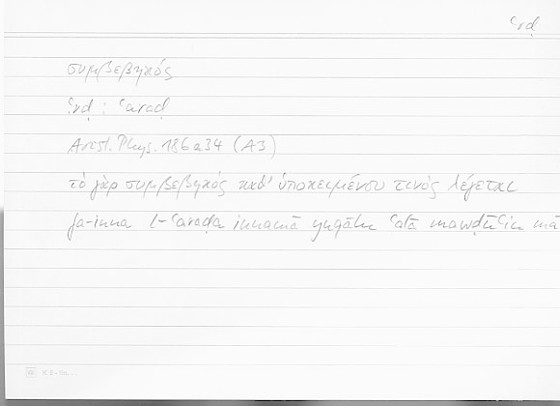 ʿrḍ
συμβεβηκός
ʿrḍ : ʿaraḍ
Arist. Phys. 186a34 (A3)
τὸ γὰρ συμβεβηκὸς καθ' ὑποκειμένου τινὸς λέγεται
fa-inna l-ʿaraḍa innamā yuqālu ʿalā mawḍūʿin mā